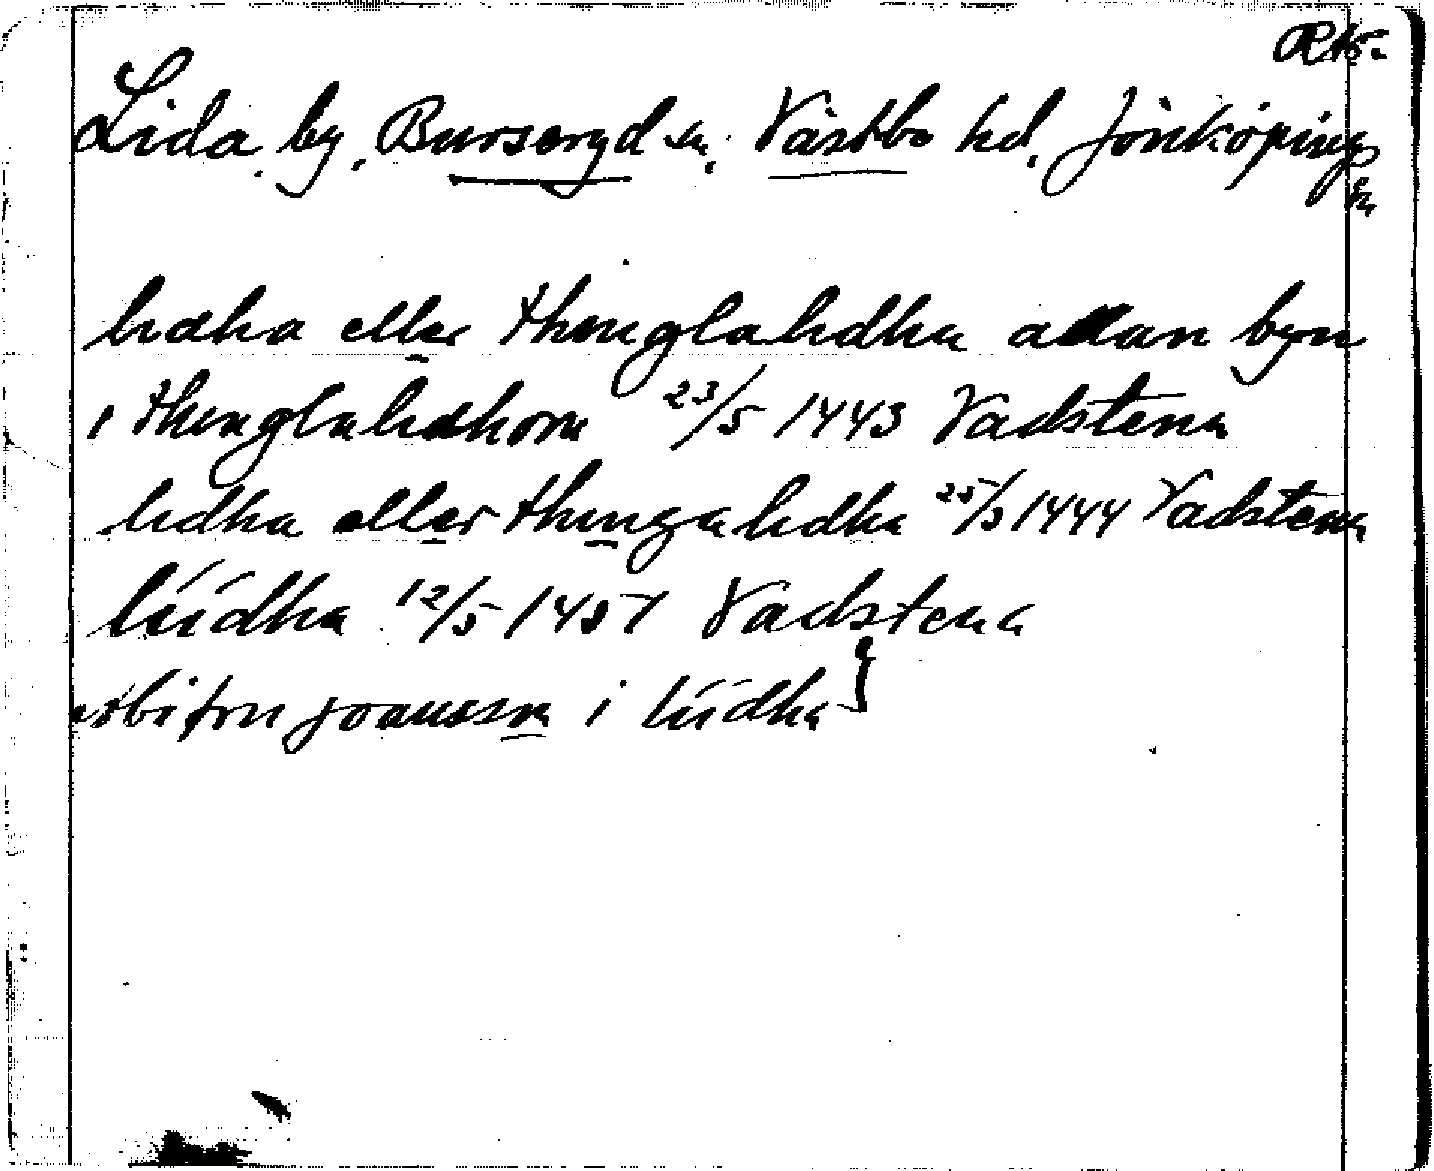 Lida, by, Burseryd sn, Västbo hd, Jönköpings
län
lidha eller thinglalidha allan byn
i thinglalidhom 23/5 1443 Vadstena
lidha eller thingalidha 25/3 1444 Vadstena
liidha 12/5 1457 Vadstena
esbiørn joansson i liidha